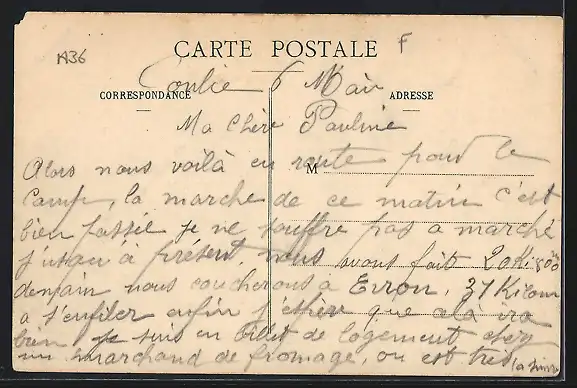 1A36
F
CARTE POSTALE
CORRESPONDANCE
ADRESSE
Conlie 6 Mai
Ma Chère Pauline
M
Alors nous voilà en route pour le
Camp, la marche de ce matin c'est
bien passée je ne souffre pas a marché
jusqu'à présent, nous avons fait 20 Ki 800
demain nous coucherons a Evron, 37 Kilom
a s'enfiler enfin j'éspère que cela ira
bien, je suis en billet de logement chez
un marchand de fromage, on est très